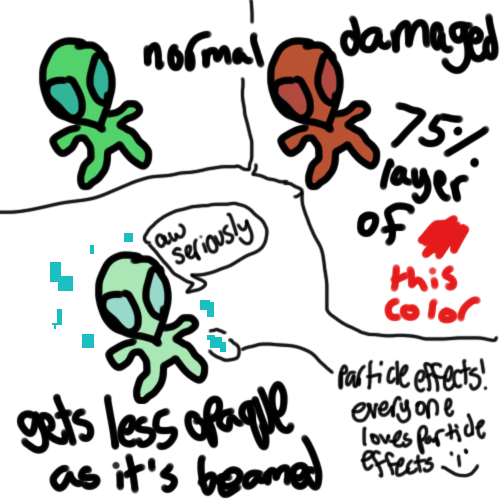 normal
damaged
75%
layer
of
this
color
aw
seriously
gets less opaque
as it's beamed
Particle effects!
everyone
loves particle
effects :)